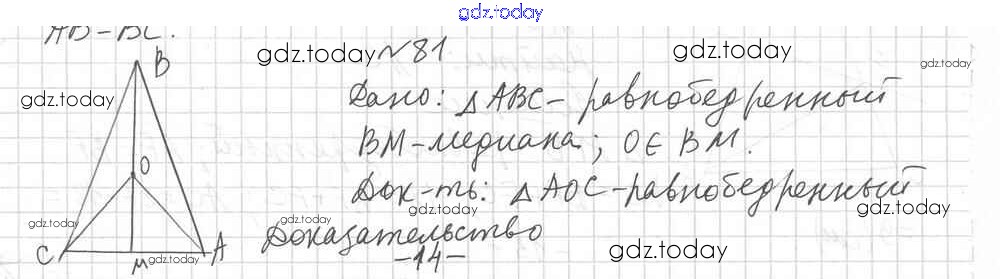 gdz.today
AB-BC.
gdz.today №81 gdz.today gdz.today
B
gdz.today
Дано: △ABC- равнобедренный
BM-медиана; O∈BM.
O
Док-ть: △AOC-равнобедренный
gdz.today gdz.today gdz.today gdz.today
Доказательство
C M gdz.today A
-14- gdz.today